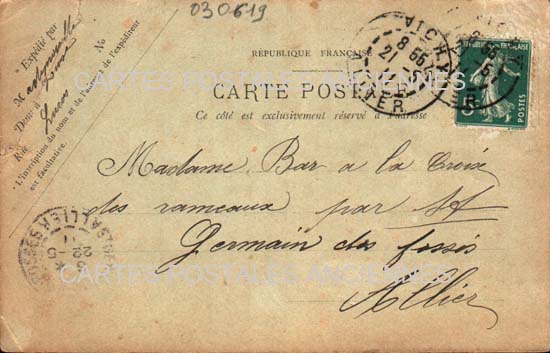 030619
RÉPUBLIQUE FRANÇAISE
CARTE POSTALE
Ce côté est exclusivement réservé à l'adresse
Expédié par
M
Demt à
Rue
No
L'inscription du nom et de l'adresse de l'expéditeur
est facultative.
VICHY
ALLIER
21 -5
Madame Bar a la Croix
des rameaux par St
Germain des fossés
Allier
ALLIER
22 -5
CARTES POSTALES ANCIENNES
CARTES POSTALES ANCIENNES